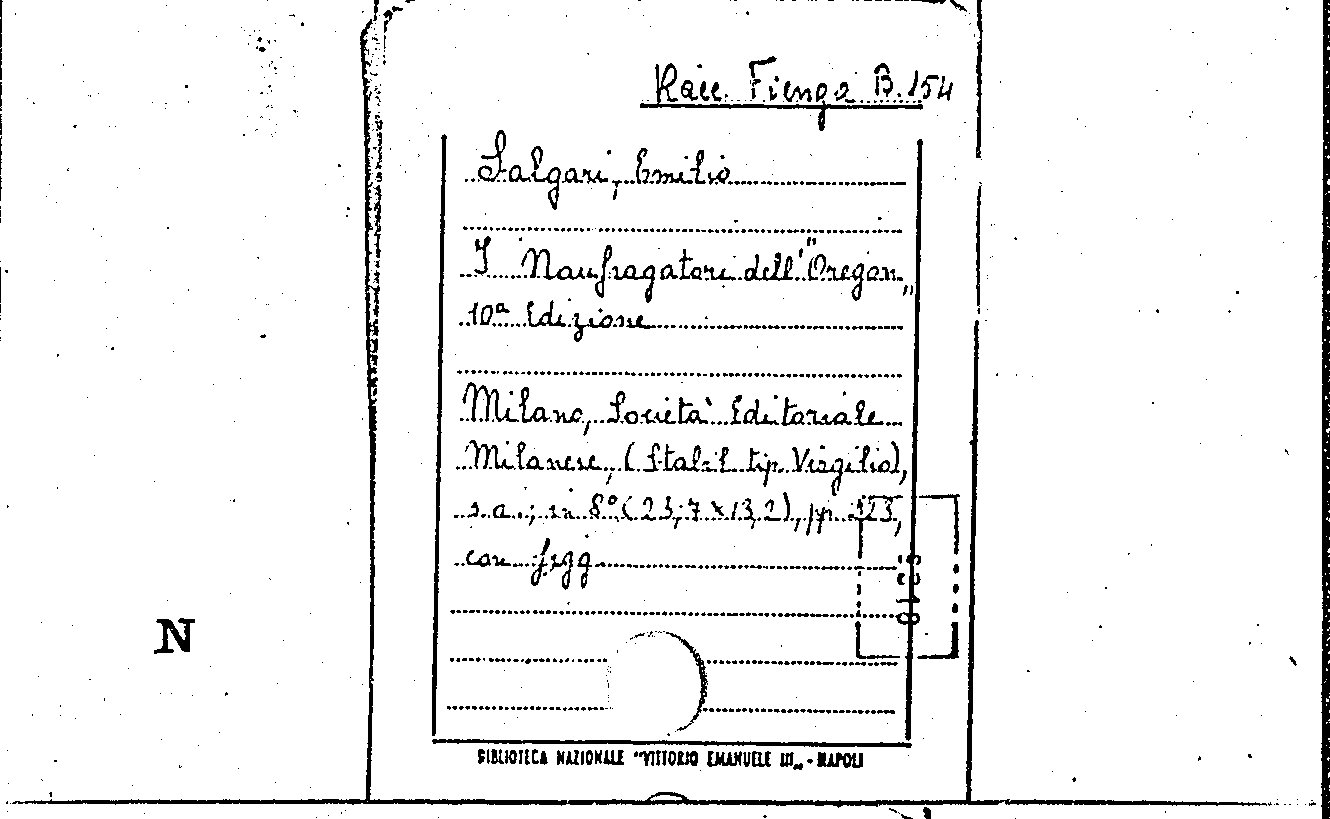 Racc. Fienga B.154
Salgari, Emilio
I Naufragatori dell'"Oregon„
10ª Edizione
Milano, Società Editoriale
Milanese, (Stabil. tip. Virgilio),
s.a.; in 8° (23,7 x 13,2), pp.
con figg
N
BIBLIOTECA NAZIONALE "VITTORIO EMANUELE III„ - NAPOLI